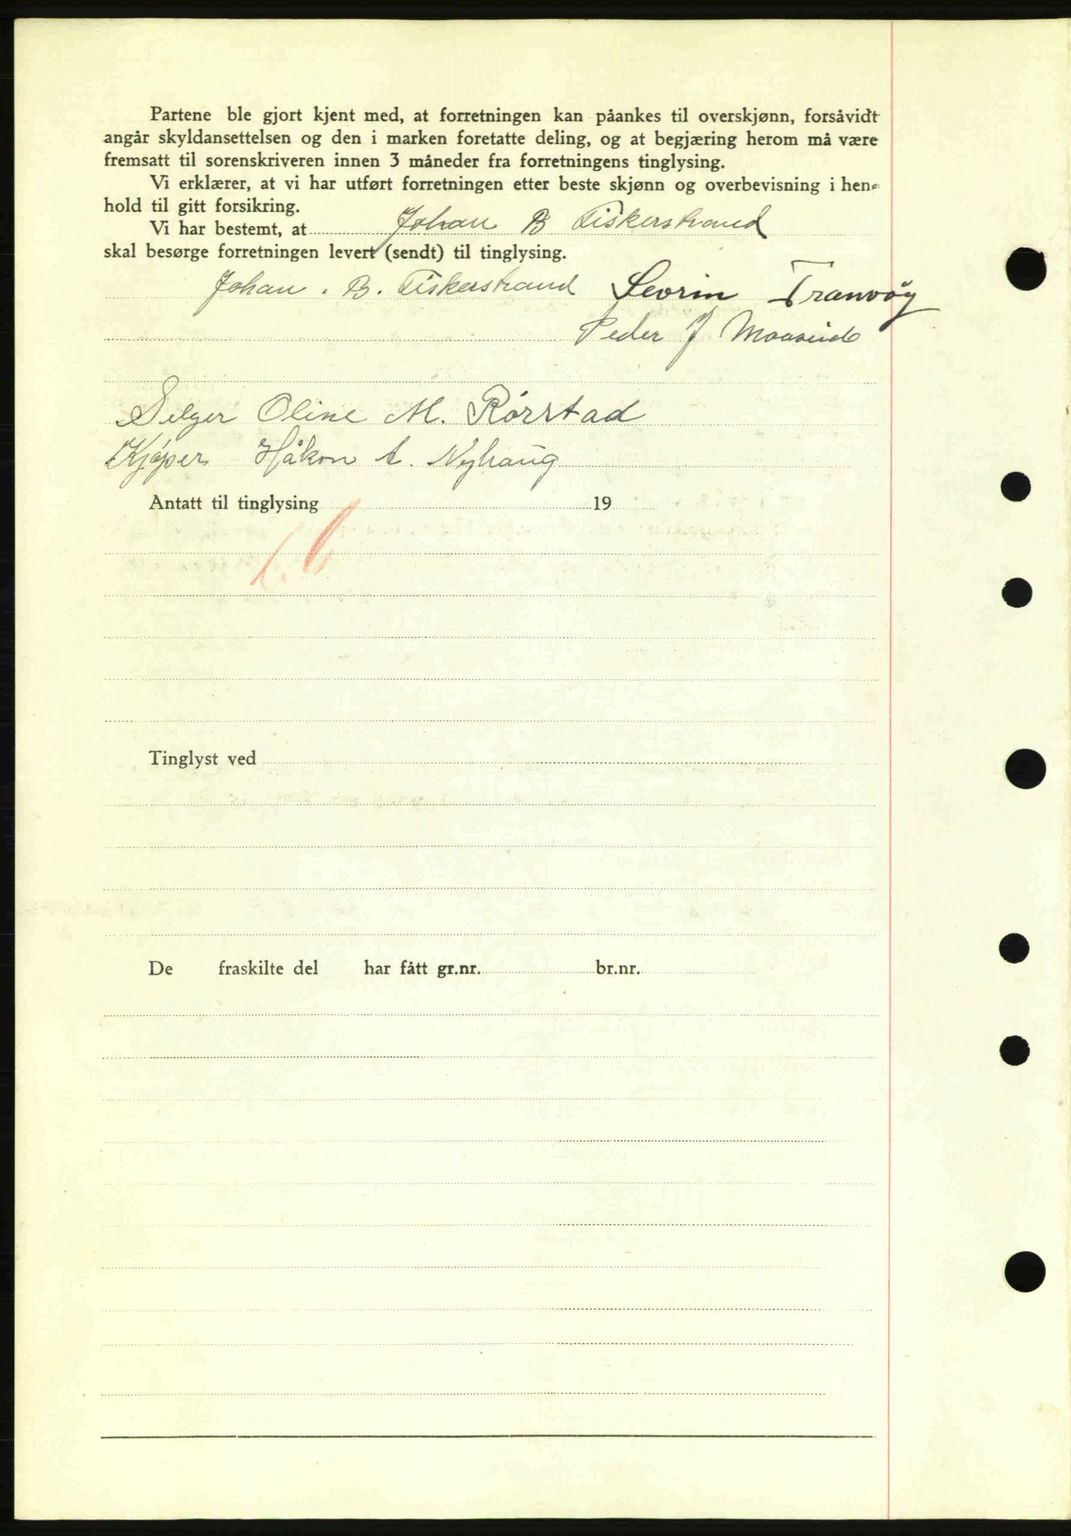 Partene ble gjort kjent med, at forretningen kan påankes til overskjønn, forsåvidt
angår skyldansettelsen og den i marken foretatte deling, og at begjæring herom må være
fremsatt til sorenskriveren innen 3 måneder fra forretningens tinglysing.
Vi erklærer, at vi har utført forretningen etter beste skjønn og overbevisning i hen-
hold til gitt forsikring.
Vi har bestemt, at Johan B Fiskerstrand
skal besørge forretningen levert (sendt) til tinglysing.
Johan. B. Fiskerstrand Sevrin Tranvåg
Peder J Moaseide
Selger Oline M. Rørstad
Kjøper Håkon A. Nyhaug
Antatt til tinglysing 19
Tinglyst ved
De fraskilte del har fått gr.nr. br.nr.